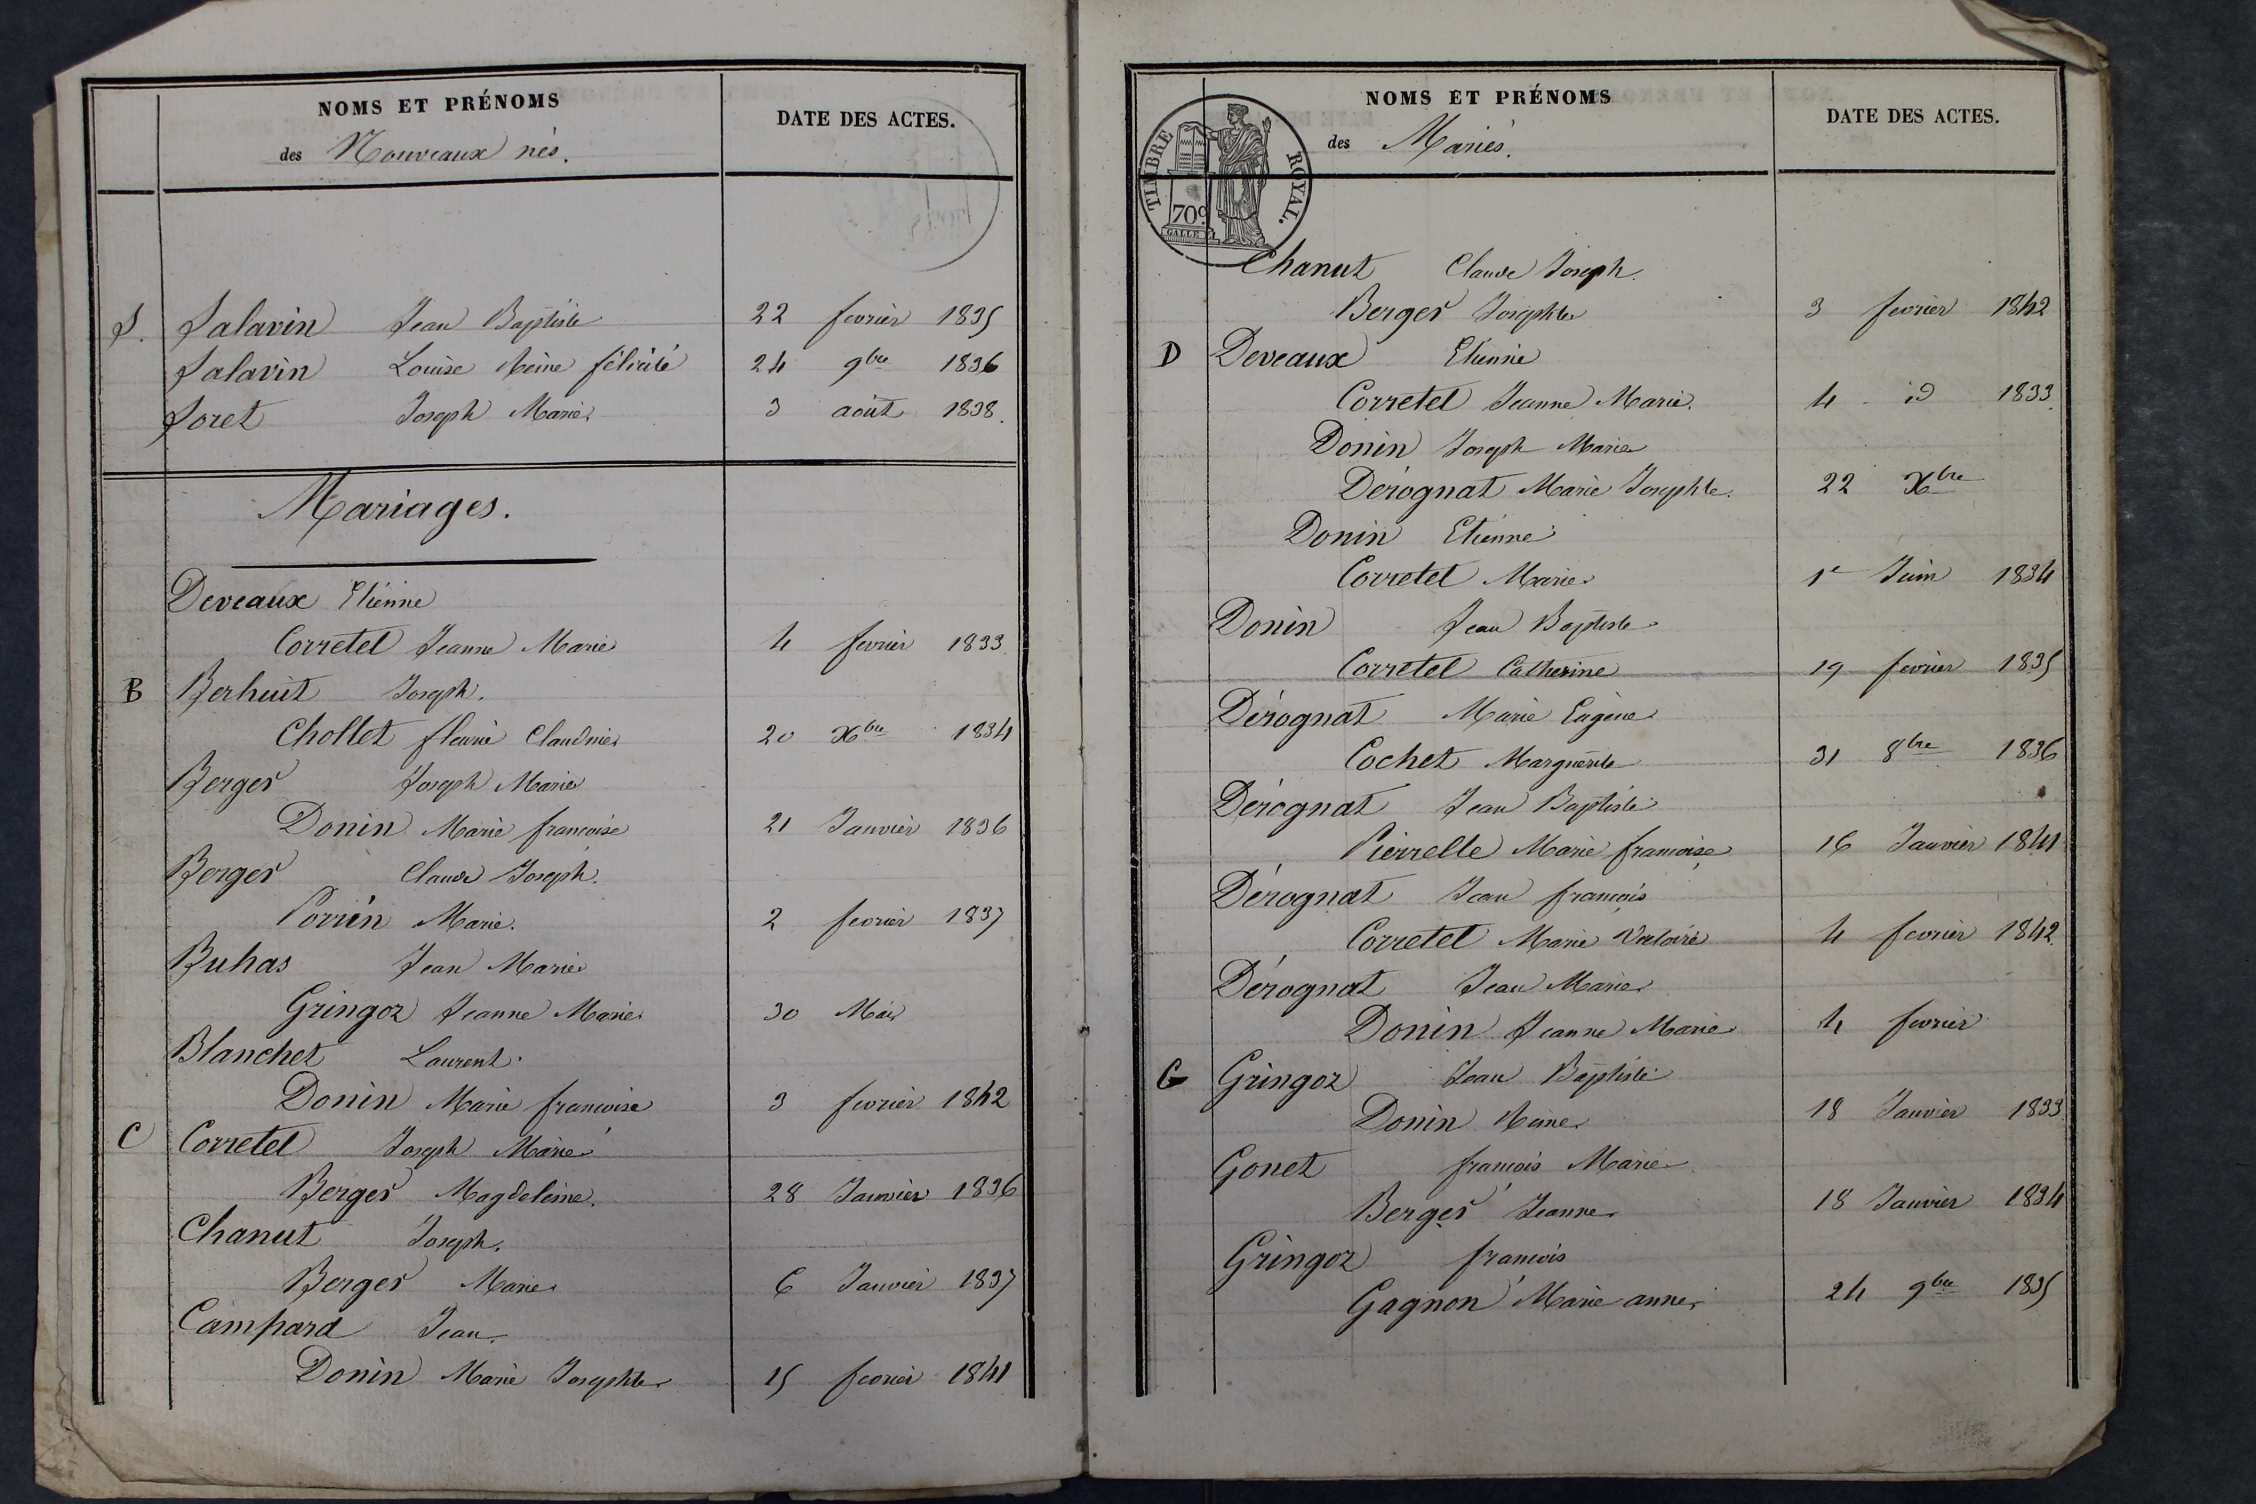 NOMS ET PRÉNOMS
des Nouveaux nés.
DATE DES ACTES.
S. Salavin Jean Baptiste 22 fevrier 1835
Salavin Louise Reine félicité 24 9bre 1836
Soret Joseph Marie 3 août 1838.
Mariages.
Deveaux Etienne
Corretel Jeanne Marie 4 fevrier 1833
B Berheut Joseph.
Chollet fleurie Claudine 20 Xbre 1834
Berger Joseph Marie
Donin Marie françoise 21 Janvier 1836
Berger Claude Joseph.
Perrin Marie. 2 fevrier 1837
Buhas Jean Marie
Gringoz Jeanne Marie 30 Mai
Blanchet Laurent.
Donin Marie françoise 3 fevrier 1842
C Corretel Joseph Marie
Berger Magdeleine. 28 Janvier 1836
Chanut Joseph.
Berger Marie 6 Janvier 1837
Campard Jean
Donin Marie Josephte 15 fevrier 1841
NOMS ET PRÉNOMS
des Mariés.
DATE DES ACTES.
TIMBRE ROYAL.
70c
GALLE
Chanut Claude Joseph.
Berger Josephte 3 fevrier 1842
D Deveaux Etienne
Corretel Jeanne Marie. 4 id 1833
Donin Joseph Marie
Dérognat Marie Josephte. 22 Xbre
Donin Etienne
Corretel Marie 1er Juin 1834
Donin Jean Baptiste
Corretel Catherine 19 fevrier 1835
Dérognat Marie Eugène
Cochet Marguerite 31 8bre 1836
Dérognat Jean Baptiste
Pierrelle Marie françoise 16 Janvier 1841
Dérognat Jean françois
Corretel Marie Victoire 4 fevrier 1842
Dérognat Jean Marie
Donin Jeanne Marie 4 fevrier
G Gringoz Jean Baptiste
Donin Reine 18 Janvier 1833
Gonet françois Marie
Berger Jeanne 18 Janvier 1834
Gringoz françois
Gagnon Marie anne 24 9bre 1835